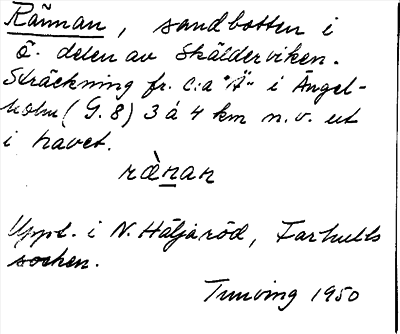 Rännan, sandbotten i
ö. delen av Skälderviken.
Sträckning fr. c:a "Ä" i Ängel-
holm (G.8) 3 à 4 km n.v. ut
i havet.
rànan
Uppt. i N. Häljaröd, Farhults
socken.
Tuning 1950